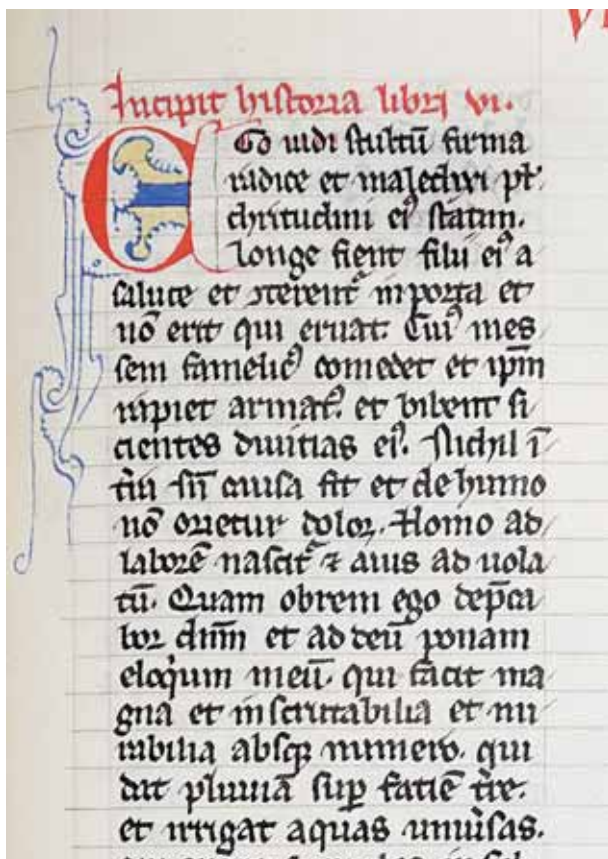 Incipit historia libri vi.
Ego uidi stultū firma
radice et maledixi pl̄
chritudini eiꝰ statim.
Longe fient filii eiꝰ a
salute et ꝯterent᷑ in porta et
nō erit qui eruat. Cuiꝰ mes
sem famelicꝰ comedet et ip̄m
rapiet armatꝰ et bibent si
cientes diuitias eiꝰ. Nichil ī
t̄ra sn̄ causa fit et de humo
nō orietur dolor. Homo ad
laborē nascit᷑ ⁊ auis ad uola
tū. Quam obrem ego dep̄ca
bor dn̄m et ad deū ponam
eloq̇um meū. qui facit ma
gna et inscrutabilia et mi
rabilia absqꝫ numero. qui
dat pluuiā suꝑ faciē t̄re.
et irrigat aquas uniu̓sas.